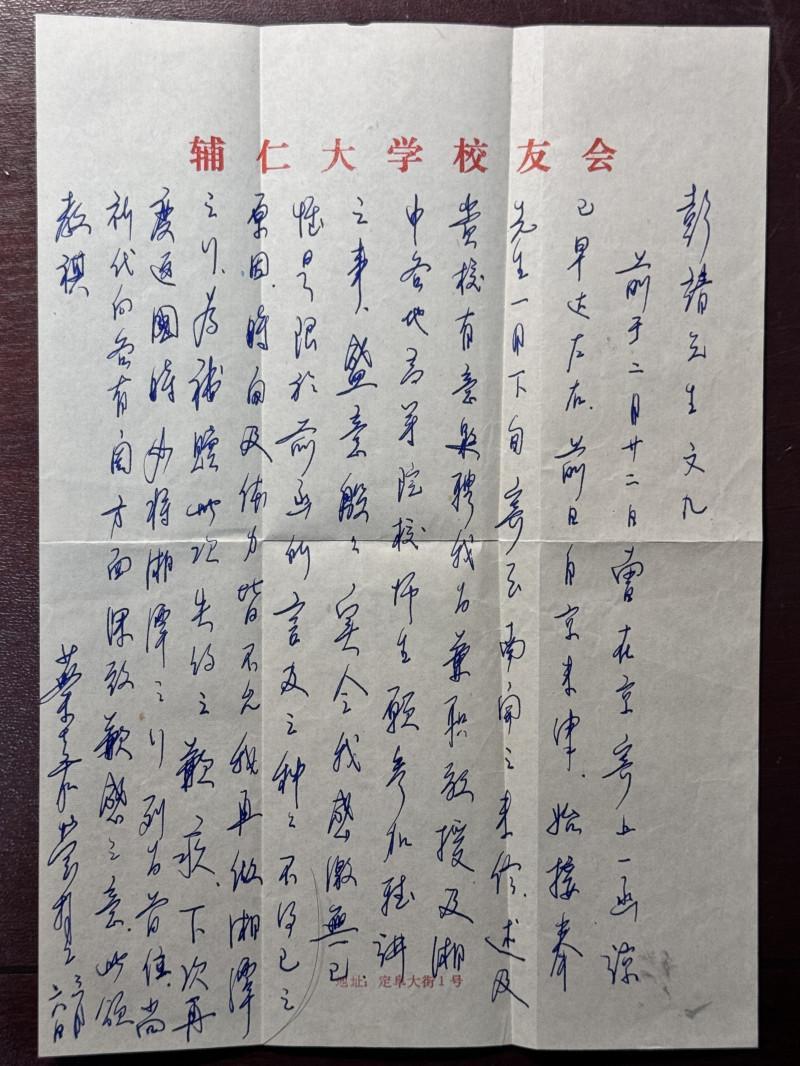 辅仁大学校友会
彭靖先生文几
前于二月廿二日曾在京寄上一函谅
已早达左右.前日自京来津.始接奉
先生一月下旬寄至南开之来信.述及
贵校有意思聘我为兼职教授及湘
中各地高等院校师生愿参加听讲
之事.盛意殷々实令我感激無已.
惟是限於前函所言及之种々不得已之
原因.時间及体力皆不允我再做湘潭
之行.为補贖此次失约之歉疚.下次再
度返國時必将湘潭之行列为首位.尚
祈代向各有関方面深致歉感之意.此颂
教祺
葉嘉莹拜上 三月六日
地址：定阜大街1号